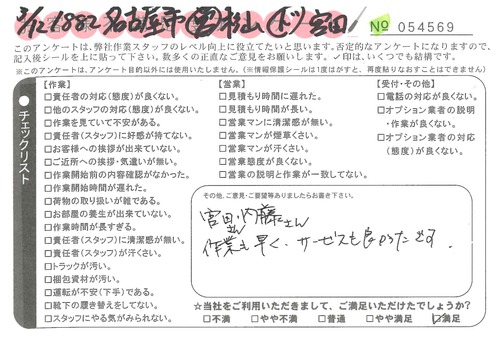 3/12 1882 名古屋市 営 杉山 宮田
No 054569
このアンケートは、弊社作業スタッフのレベル向上に役立てたいと思います。否定的なアンケートになりますので、
記入後シールを上に貼って下さい。数多くの正直なご意見をお願いします。✓印は、いくつでも結構です。
※このアンケートは、アンケート目的以外には使用いたしません。(※情報保護シールは1度はがすと、再度貼りなおすことはできません)
チェックリスト
【作業】
□責任者の対応(態度)が良くない。
□他のスタッフの対応(態度)が良くない。
□作業を見ていて不安がある。
□責任者(スタッフ)に好感が持てない。
□お客様への挨拶が出来ていない。
□ご近所への挨拶・気遣いが無い。
□作業開始前の内容確認がなかった。
□作業開始時間が遅れた。
□荷物の取り扱いが雑である。
□お部屋の養生が出来ていない。
□作業時間が長すぎる。
□責任者(スタッフ)に清潔感が無い。
□責任者(スタッフ)が汗くさい。
□トラックが汚い。
□梱包資材が汚い。
□運転が不安(下手)である。
□靴下の履き替えをしてない。
□スタッフにやる気がみられない。
【営業】
□見積もり時間に遅れた。
□見積もり時間が長い。
□営業マンに清潔感が無い。
□営業マンが煙草くさい。
□営業マンが汗くさい。
□営業態度が良くない。
□営業の説明と作業が一致してない。
【受付・その他】
□電話の対応が良くない。
□オプション業者の説明
・作業が良くない。
□オプション業者の対応
(態度)が良くない。
その他、ご意見・ご要望等ありましたらお書き下さい。
宮田さん 内藤さん
作業も早く、サービスも良かったです。
☆当社をご利用いただきまして、ご満足いただけたでしょうか?
□不満 □やや不満 □普通 □やや満足 ☑満足